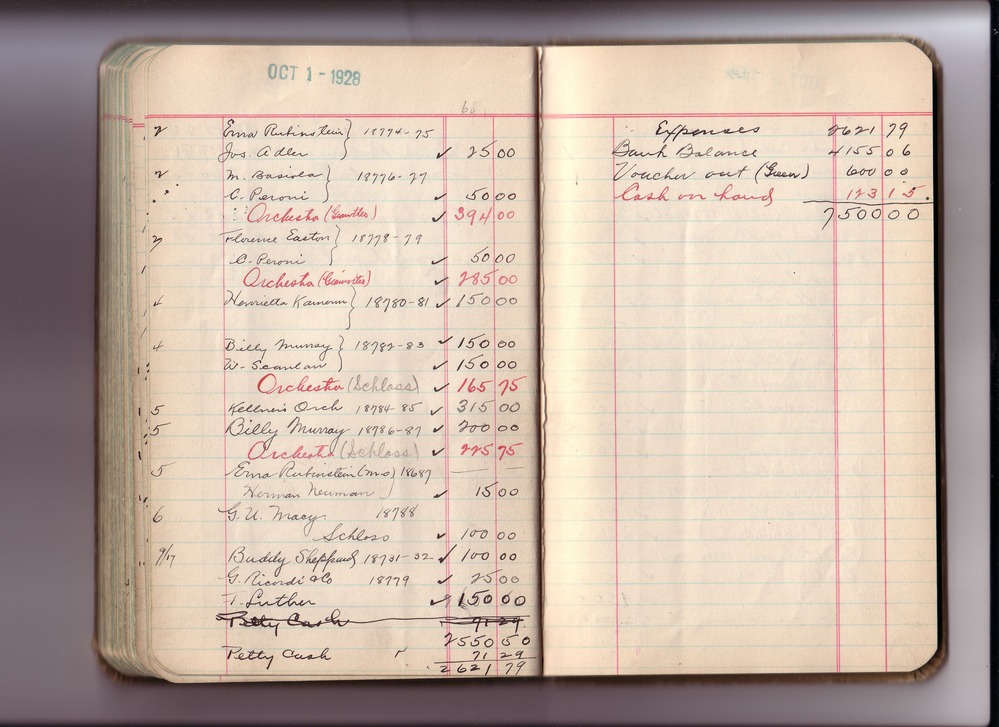 OCT 1 - 1928
60
2 Erna Rubinstein } 18774-75
Jos. Adler ✓ 25 00
2 M. Basiola } 18776-77
C. Peroni ✓ 50 00
Orchestra ✓ 394 00
2 Florence Easton } 18778-79
C. Peroni ✓ 50 00
Orchestra ✓ 285 00
4 Henrietta Kamern } 18780-81 ✓ 150 00
4 Billy Murray } 18782-83 ✓ 150 00
W. Scanlan ✓ 150 00
Orchestra (Schloss) ✓ 165 75
5 Kellner's Orch 18784-85 ✓ 315 00
5 Billy Murray 18786-87 ✓ 200 00
Orchestra (Schloss) ✓ 225 75
5 Erna Rubinstein (mo) 18687
Herman Neuman ✓ 15 00
6 G. U. Macy 18788
Schloss ✓ 100 00
9/17 Buddy Sheppard 18731-32 ✓ 100 00
G. Ricordi & Co 18779 ✓ 25 00
F. Luther ✓ 150 00
Petty Cash 71 29
2550 50
Petty Cash 71 29
2621 79
Expenses 2621 79
Bank Balance 4155 06
Voucher out (Green) 600 00
Cash on hand 123 15
7500 00